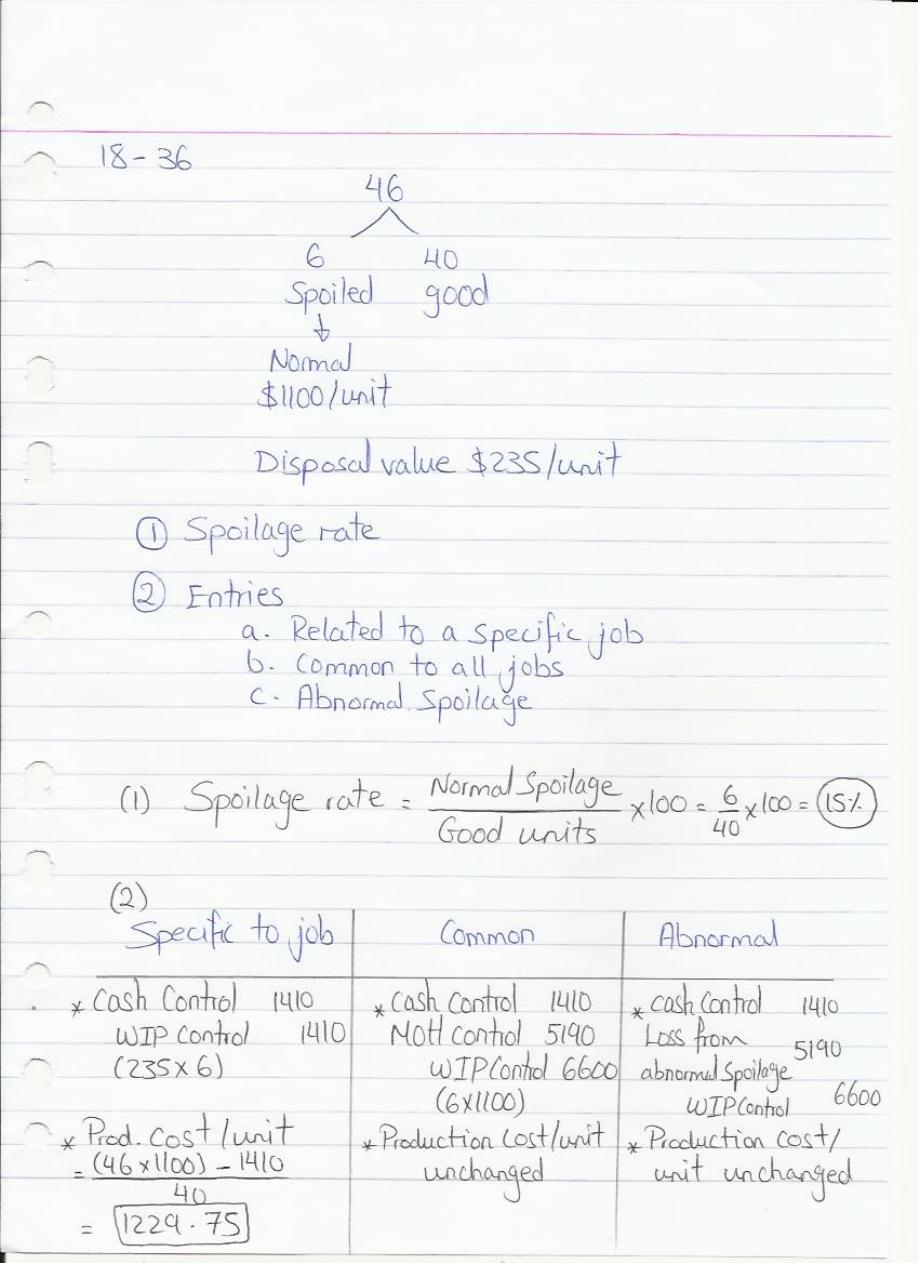 18-36
46
6 40
Spoiled good
↓
Normal
$1100/unit
Disposal value $235/unit
① Spoilage rate
② Entries
a. Related to a specific job
b. Common to all jobs
c. Abnormal Spoilage
(1) Spoilage rate = Normal Spoilage / Good units × 100 = 6/40 × 100 = 15%
(2)
Specific to job
* Cash Control 1410
WIP Control 1410
(235 × 6)
* Prod. Cost/unit
= (46 × 1100) - 1410
40
= 1229.75
Common
* Cash Control 1410
MOH Control 5190
WIP Control 6600
(6×1100)
* Production Cost/unit
unchanged
Abnormal
* Cash Control 1410
Loss from 5190
abnormal Spoilage
WIP Control 6600
* Production cost/
unit unchanged